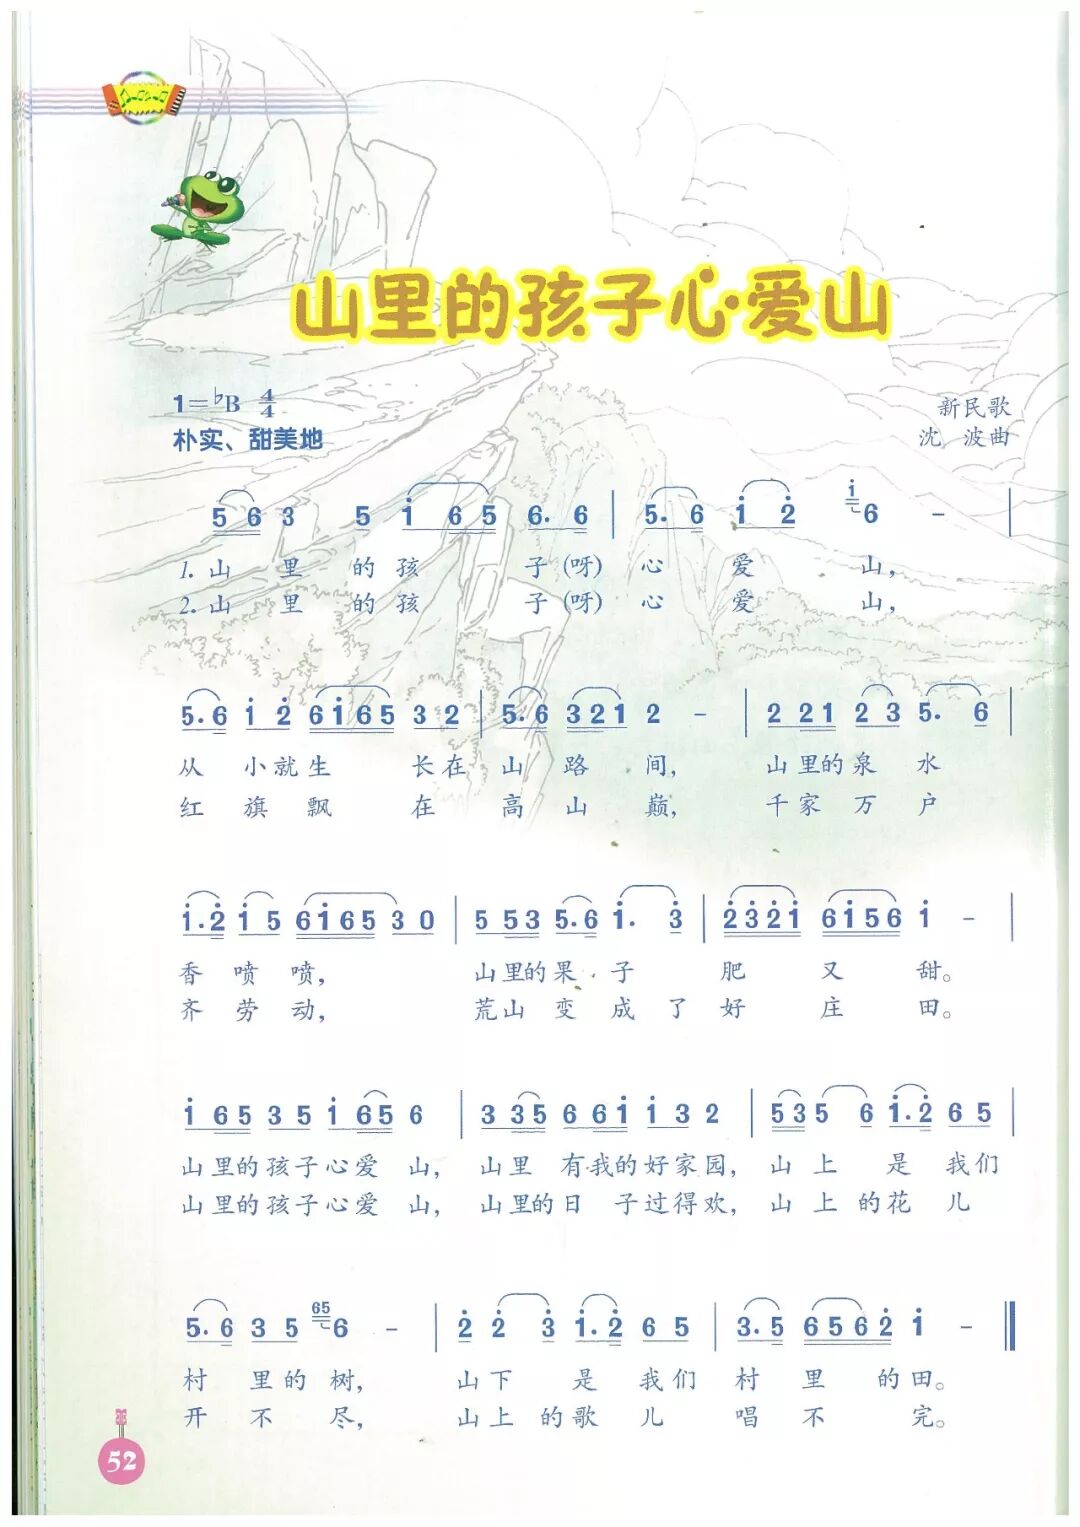 山里的孩子心爱山
1=♭B 4/4
新民歌
朴实、甜美地
沈 波曲
5 6 3 5 i 6 5 6. 6 | 5. 6 i 2̇ i6 -  |
1. 山 里 的 孩 子 (呀) 心 爱 山,
2. 山 里 的 孩 子 (呀) 心 爱 山,
5. 6 i 2̇ 6 i 6 5 3 2 | 5. 6 3 2 1 2 - | 2 2 1 2 3 5. 6 |
从 小 就 生 长 在 山 路 间, 山 里 的 泉 水
红 旗 飘 在 高 山 巅, 千 家 万 户
i. 2̇ i 5 6 i 6 5 3 0 | 5 5 3 5. 6 i. 3̇ | 2̇ 3̇ 2̇ i 6 i 5 6 i - |
香 喷 喷, 山 里 的 果 子 肥 又 甜。
齐 劳 动, 荒 山 变 成 了 好 庄 田。
i 6 5 3 5 i 6 5 6 | 3 3 5 6 6 i i 3 2 | 5 3 5 6 i. 2̇ 6 5 |
山 里 的 孩 子 心 爱 山, 山 里 有 我 的 好 家 园, 山 上 是 我 们
山 里 的 孩 子 心 爱 山, 山 里 的 日 子 过 得 欢, 山 上 的 花 儿
5. 6 3 5 65 6 - | 2̇ 2̇ 3̇ i. 2̇ 6 5 | 3. 5 6 5 6 2̇ i - ‖
村 里 的 树, 山 下 是 我 们 村 里 的 田。
开 不 尽, 山 上 的 歌 儿 唱 不 完。
52